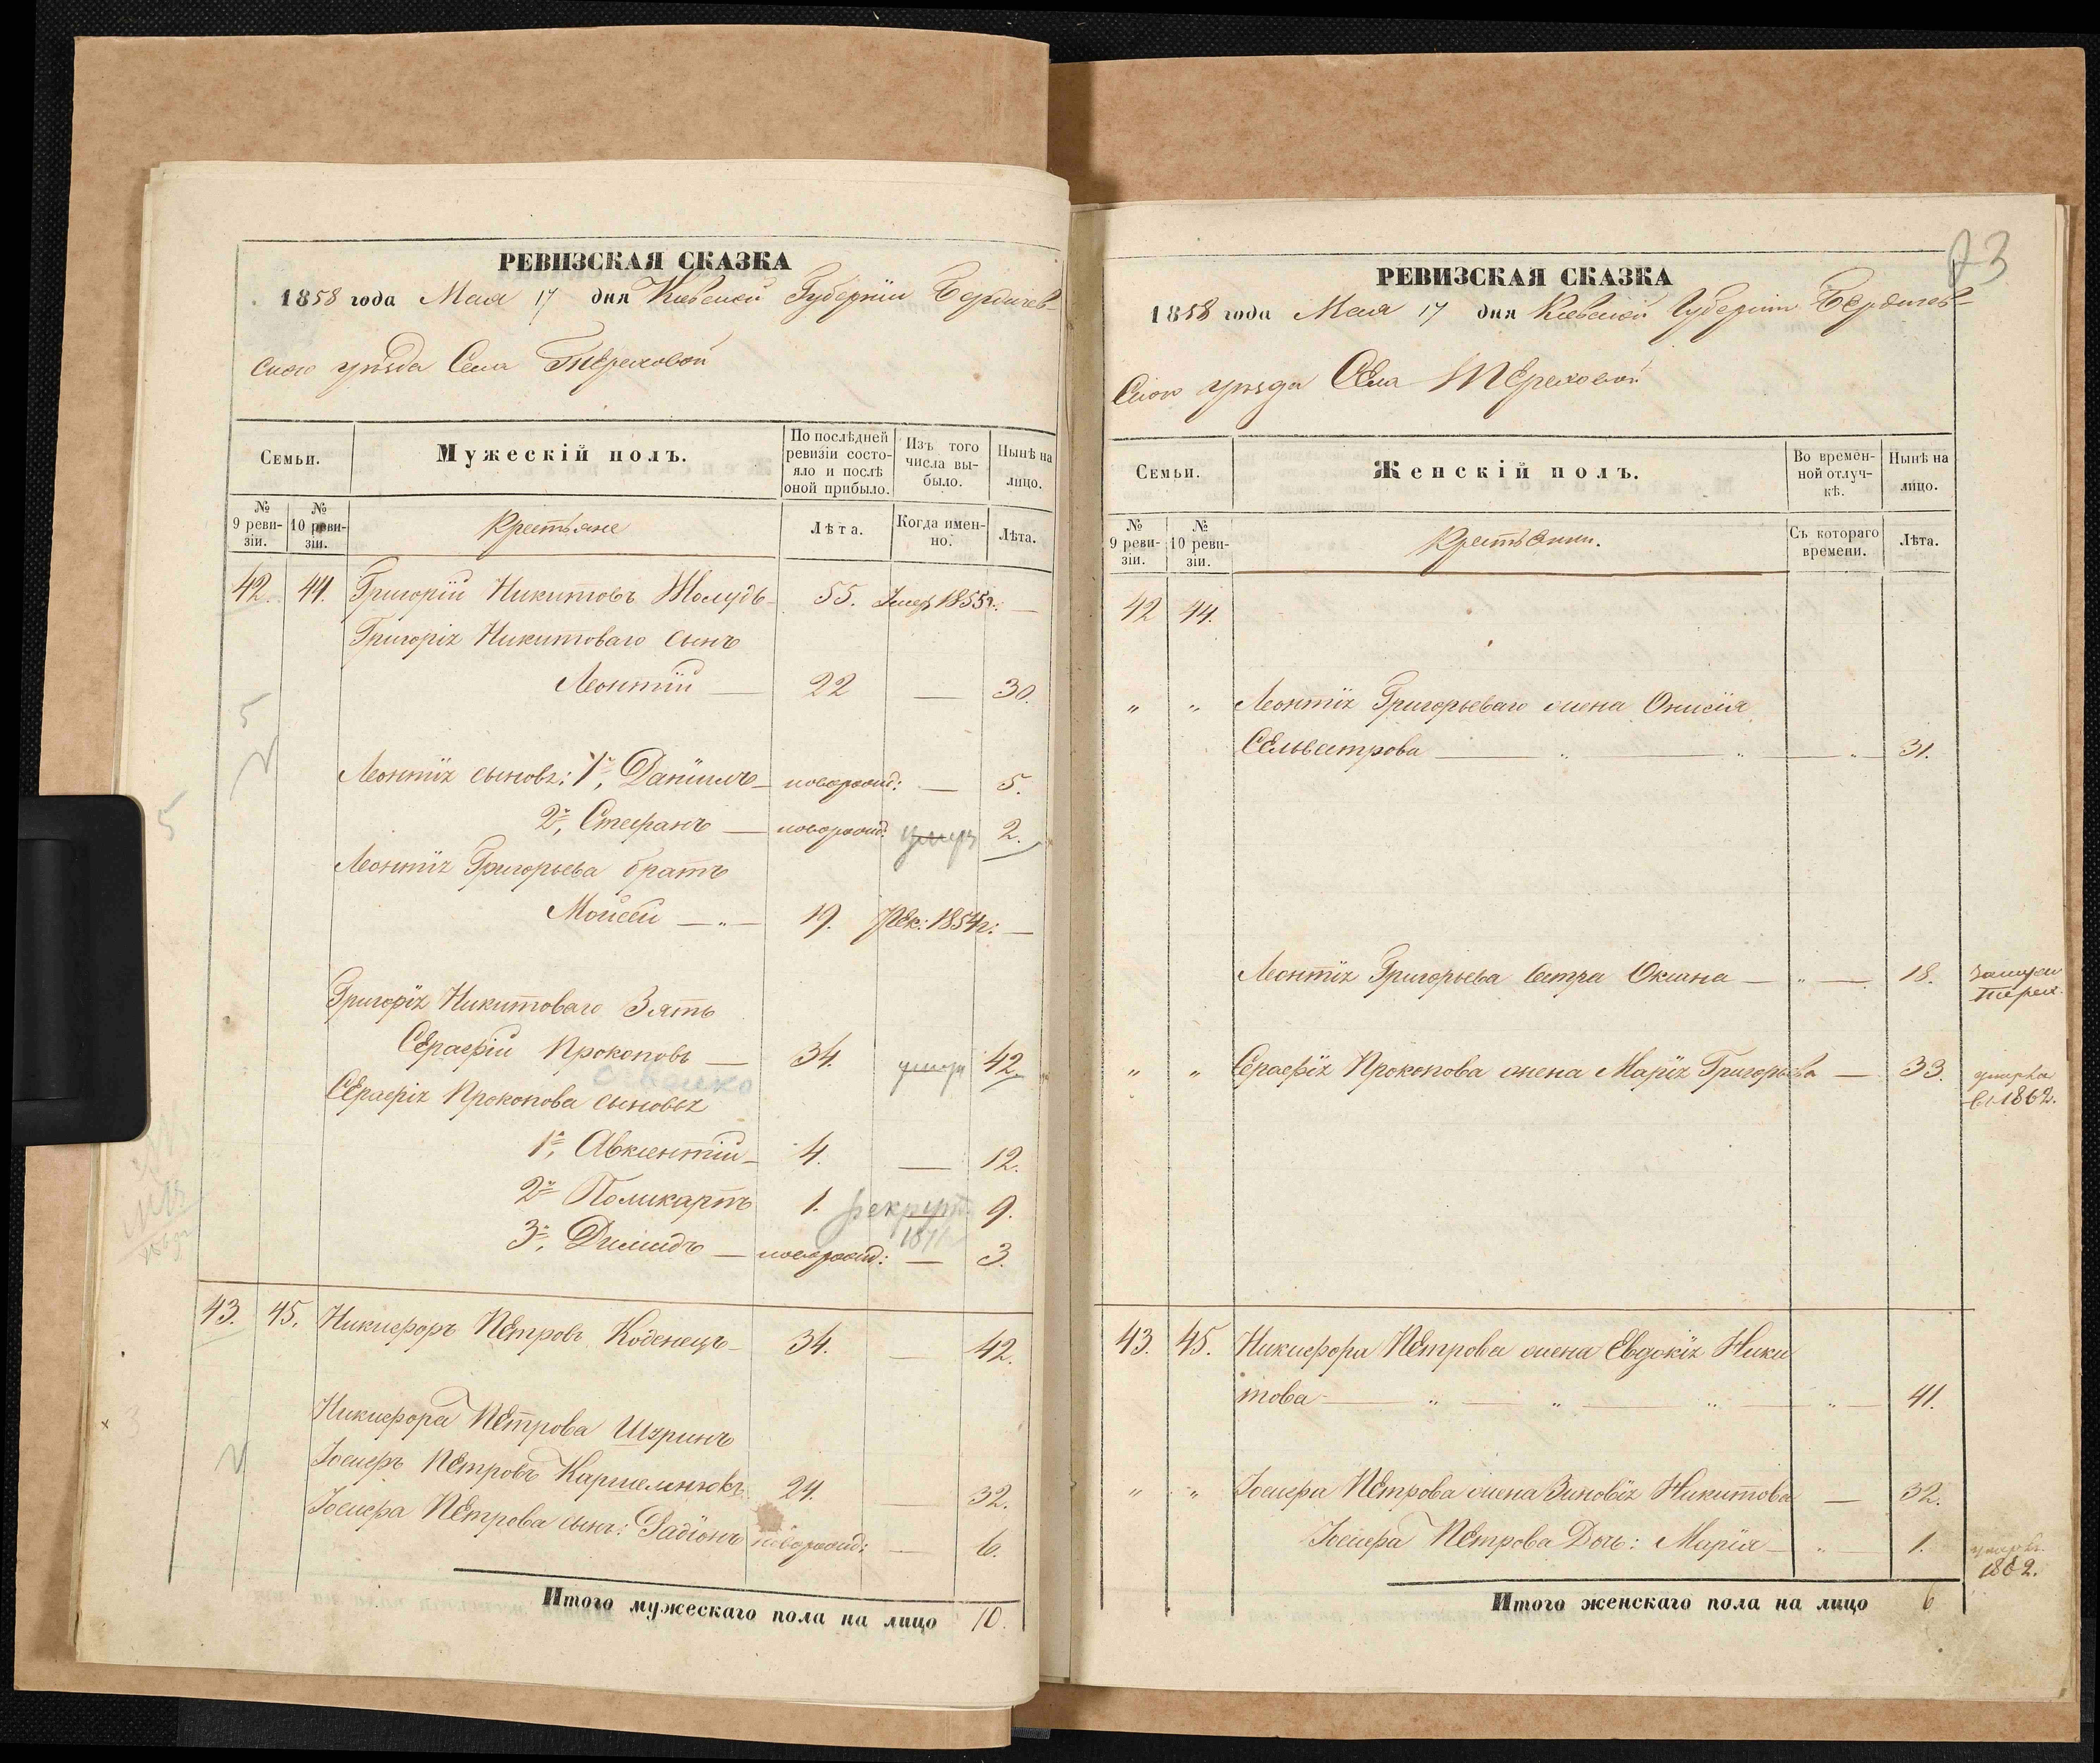 РЕВИЗСКАЯ СКАЗКА
1858 года Мая 17 дня Кіевской Губерніи Бердичев-
скаго уѣзда Села Тереховой
Семьи.
Мужескій полъ.
По послѣдней ревизіи состояло и послѣ оной прибыло.
Изъ того числа выбыло.
Нынѣ на лицо.
№ 9 ревизіи.
№ 10 ревизіи.
Крестьяне
Лѣта.
Когда именно.
Лѣта.
42. 44. Григорій Никитовъ Жолудь 55. Умер 1855г. —
Григорія Никитоваго сынъ
Леонтій — 22 — 30.
5
Леонтія сыновья: 1й, Даніилъ — новорожд: — 5.
5
2й, Стефанъ — новорожд: умеръ 2.
Леонтія Григорьева братъ
Мойсей — „ — 19. Рек: 1854г: —
Григорія Никитоваго Зять
Серафій Прокоповъ — 34. умеръ 42.
Серафія Прокопова сыновья
1й, Авксентій — 4. — 12.
2й Поликарпъ 1. рекрут 9.
187
3й, Дилидъ — новорожд: — 3.
43. 45. Никифоръ Петровъ Коденецъ — 34. — 42.
Никифора Петрова Шуринъ
3
Іосифъ Петровъ Кармелюкъ 24. — 32.
Іосифа Петрова сынъ: Радіонъ новорожд: — 6.
Итого мужескаго пола на лицо 10.
73
РЕВИЗСКАЯ СКАЗКА
1858 года Мая 17 дня Кіевской Губерніи Бердичев-
скаго уѣзда Села Тереховой
Семьи.
Женскій полъ.
Во временной отлучкѣ.
Нынѣ на лицо.
№ 9 ревизіи.
№ 10 ревизіи.
Крестьянки.
Съ котораго времени.
Лѣта.
42 44.
„ „ Леонтія Григорьеваго жена Онисія
Сельвестрова — „ — „ — „ — 31.
Леонтія Григорьева сестра Оксана — „ — 18. замужем
Терех.
„ „ Серафія Прокопова жена Марія Григорьева — 33. умерла
в 1862.
43. 45. Никифора Петрова жена Евдокія Ники
това — „ — „ — „ — „ — 41.
„ „ Іосифа Петрова жена Зиновія Никитова — 32.
Іосифа Петрова Дочь: Марія — „ — 1. умерла
1862.
Итого женскаго пола на лицо 6